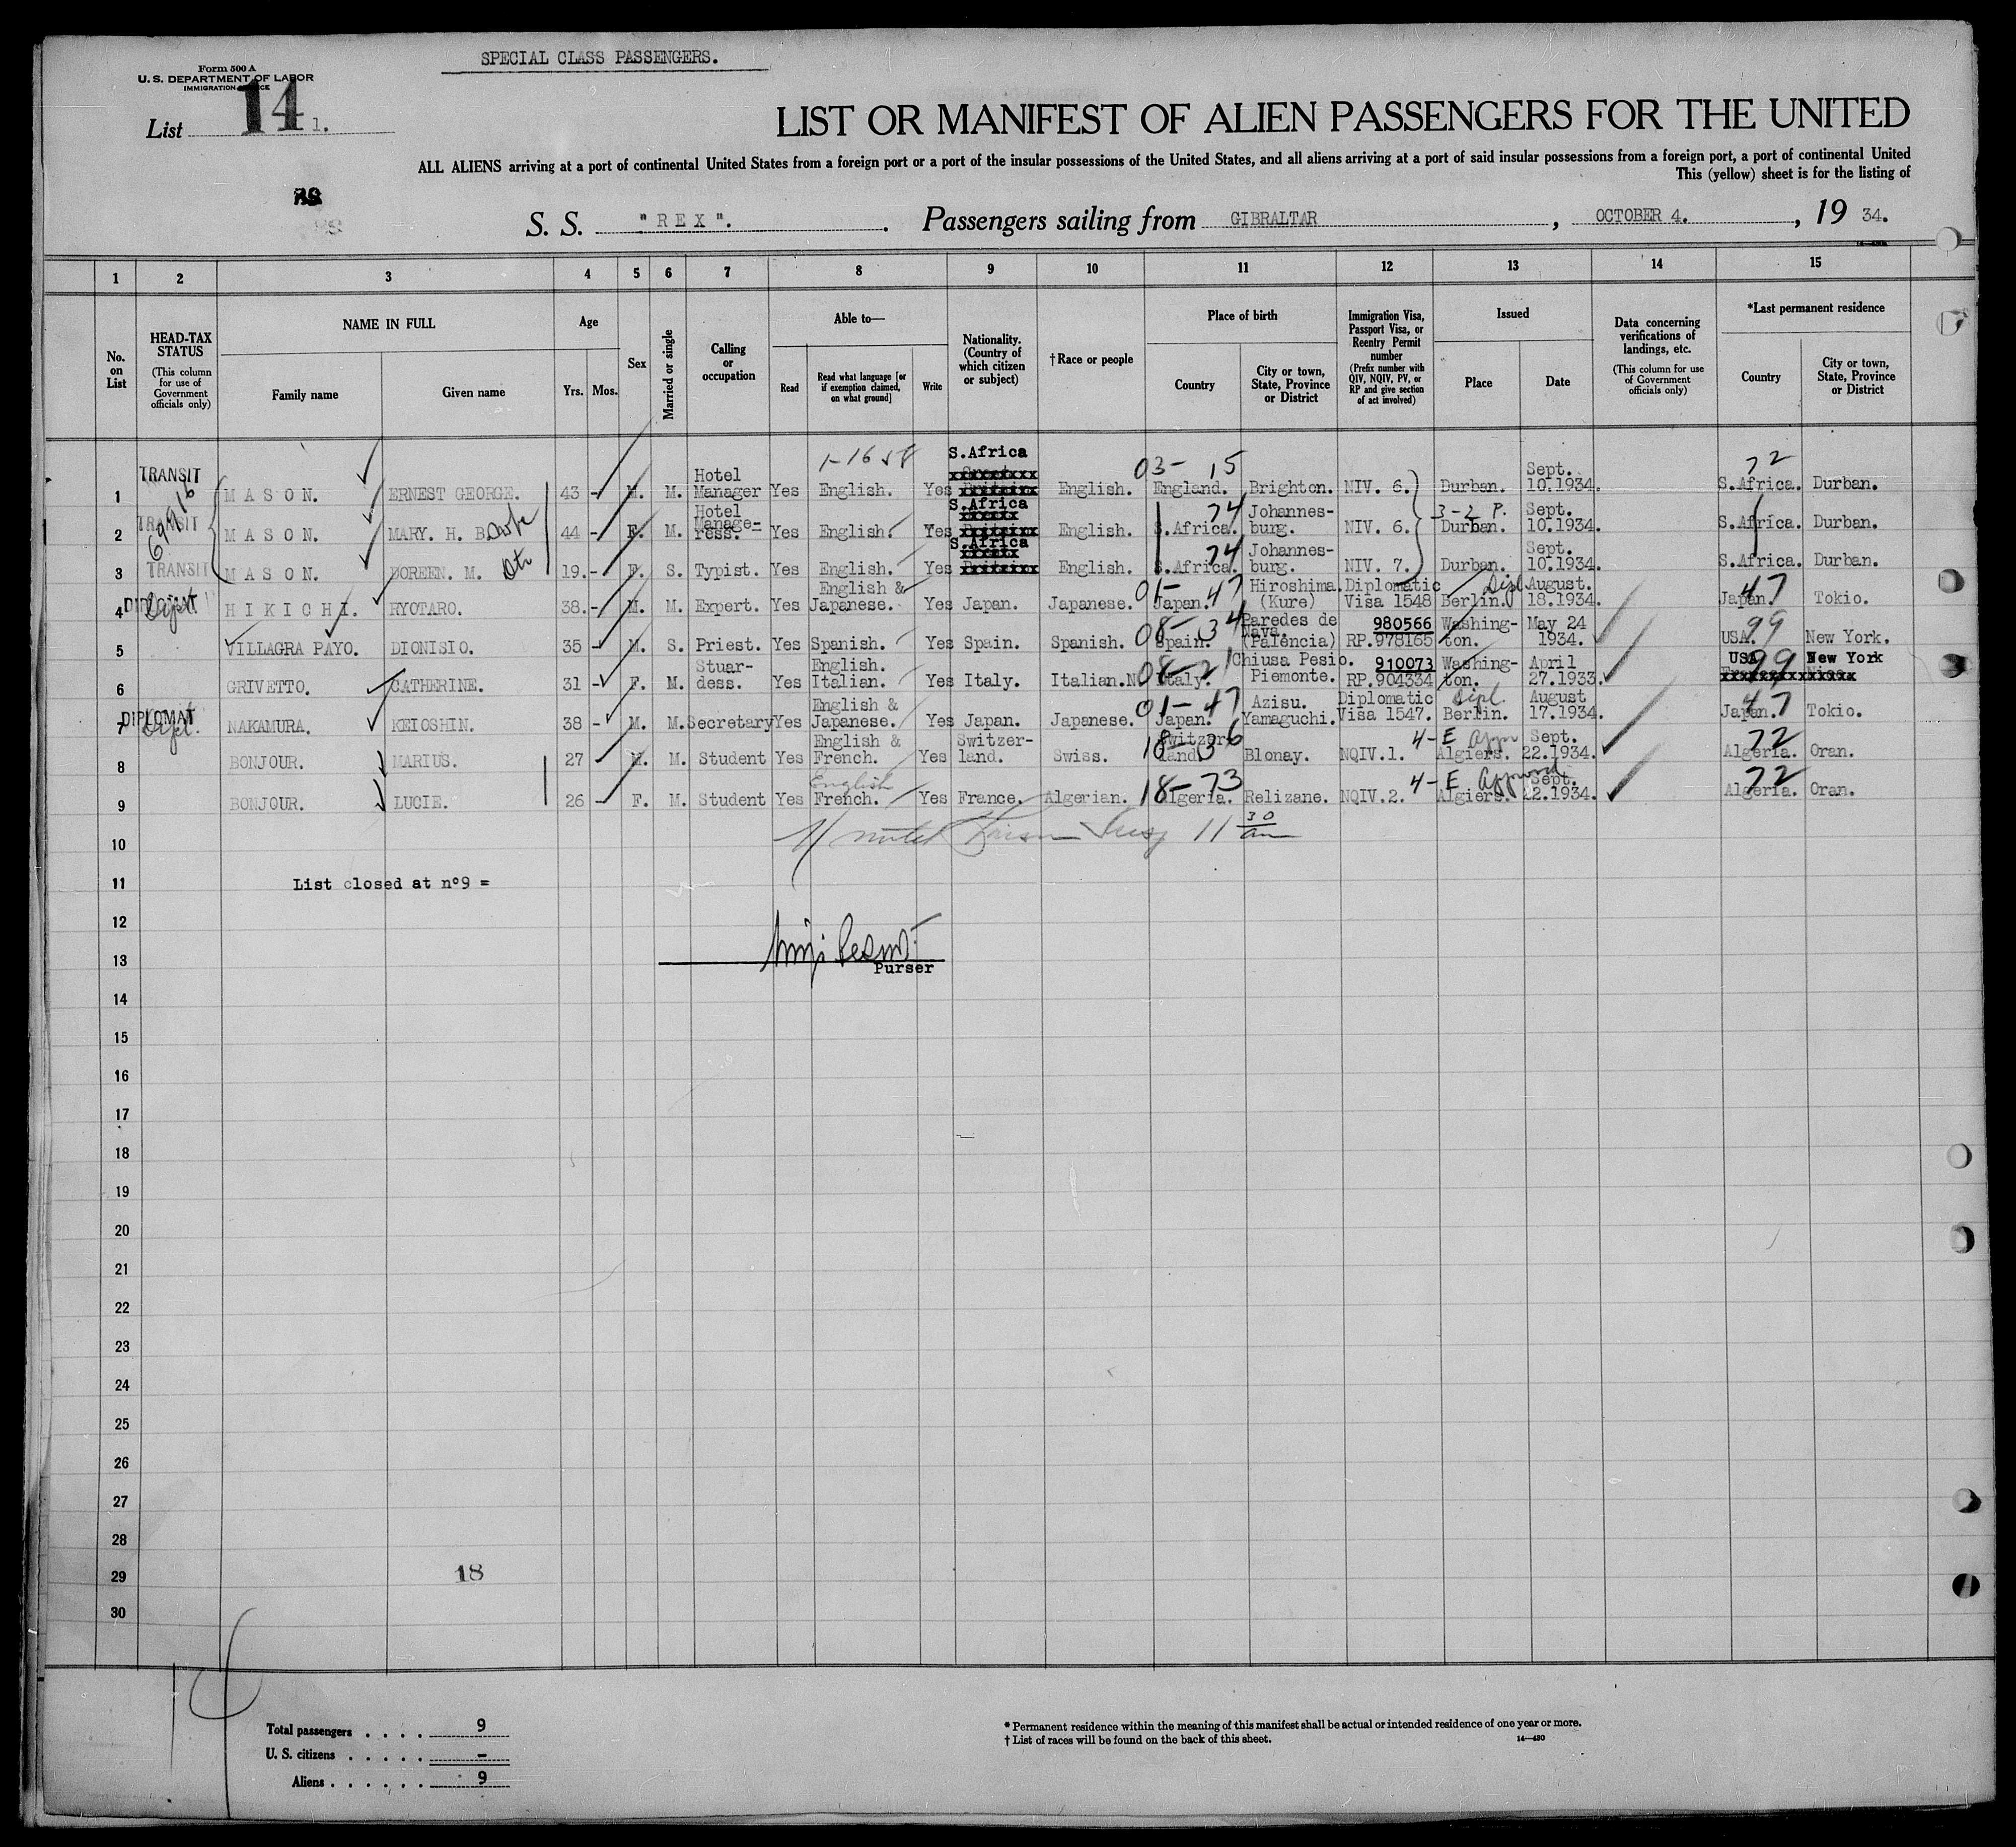 SPECIAL CLASS PASSENGERS.
Form 500 A
U. S. DEPARTMENT OF LABOR
IMMIGRATION SERVICE
List 14 1.
LIST OR MANIFEST OF ALIEN PASSENGERS FOR THE UNITED
ALL ALIENS arriving at a port of continental United States from a foreign port or a port of the insular possessions of the United States, and all aliens arriving at a port of said insular possessions from a foreign port, a port of continental United
This (yellow) sheet is for the listing of
S. S. "REX". Passengers sailing from GIBRALTAR, OCTOBER 4., 19 34.
1 2 3 4 5 6 7 8 9 10 11 12 13 14 15
No. on List
HEAD-TAX STATUS (This column for use of Government officials only)
NAME IN FULL
Family name
Given name
Age
Yrs. Mos.
Sex
Married or single
Calling or occupation
Able to—
Read
Read what language [or if exemption claimed, on what ground]
Write
Nationality. (Country of which citizen or subject)
†Race or people
Place of birth
Country
City or town, State, Province or District
Immigration Visa, Passport Visa, or Reentry Permit number (Prefix number with QIV, NQIV, PV, or RP and give section of act involved)
Issued
Place
Date
Data concerning verifications of landings, etc. (This column for use of Government officials only)
*Last permanent residence
Country
City or town, State, Province or District
1 TRANSIT MASON. ERNEST GEORGE. 43 - M. M. Hotel Manager Yes English. Yes S.Africa English. 03- 15 England. Brighton. NIV. 6. Durban. Sept. 10.1934. 72 S.Africa. Durban.
2 TRANSIT MASON. MARY. H. B. 44 - F. M. Hotel Manage-ress. Yes English. Yes S.Africa English. 74 S.Africa. Johannes-burg. NIV. 6. 3-2 P. Durban. Sept. 10.1934. S.Africa. Durban.
3 TRANSIT MASON. DOREEN. M. 19.- F. S. Typist. Yes English. Yes S.Africa English. 74 S.Africa. Johannes-burg. NIV. 7. Durban. Sept. 10.1934. S.Africa. Durban.
4 DIPLOMAT HIKICHI. RYOTARO. 38.- M. M. Expert. Yes English & Japanese. Yes Japan. Japanese. 01- 47 Japan. Hiroshima. (Kure) Diplomatic Visa 1548 Dipl Berlin. August. 18.1934. 47 Japan. Tokio.
5 VILLAGRA PAYO. DIONISIO. 35 - M. S. Priest. Yes Spanish. Yes Spain. Spanish. 08- 34 Spain. Paredes de Nava. (Palencia) 980566 RP.978165 Washing-ton. May 24 1934. 99 USA. New York.
6 GRIVETTO. CATHERINE. 31 - F. M. Stuar-dess. Yes English. Italian. Yes Italy. Italian.N 08-21 Italy. Chiusa Pesio. Piemonte. 910073 RP.904334 Washing-ton. April 27.1933. 99 USA New York
7 DIPLOMAT Dipl. NAKAMURA. KEIOSHIN. 38 - M. M. Secretary Yes English & Japanese. Yes Japan. Japanese. 01- 47 Japan. Azisu. Yamaguchi. Diplomatic Visa 1547. Dipl. Berlin. August 17.1934. 47 Japan. Tokio.
8 BONJOUR. MARIUS. 27 - M. M. Student Yes English & French. Yes Switzer-land. Swiss. 18- 36 Switzer-land. Blonay. NQIV.1. 4-E Algiers. Sept. 22.1934. 72 Algeria. Oran.
9 BONJOUR. LUCIE. 26 - F. M. Student Yes English French. Yes France. Algerian. 18-73 Algeria. Relizane. NQIV.2. 4-E Algiers. Sept. 22.1934. 72 Algeria. Oran.
10
11 List closed at nº9 =
12
13 Purser
14
15
16
17
18
19
20
21
22
23
24
25
26
27
28
29 18
30
Total passengers . . . . 9
U. S. citizens . . . . . -
Aliens . . . . . . 9
* Permanent residence within the meaning of this manifest shall be actual or intended residence of one year or more.
† List of races will be found on the back of this sheet. 14—430